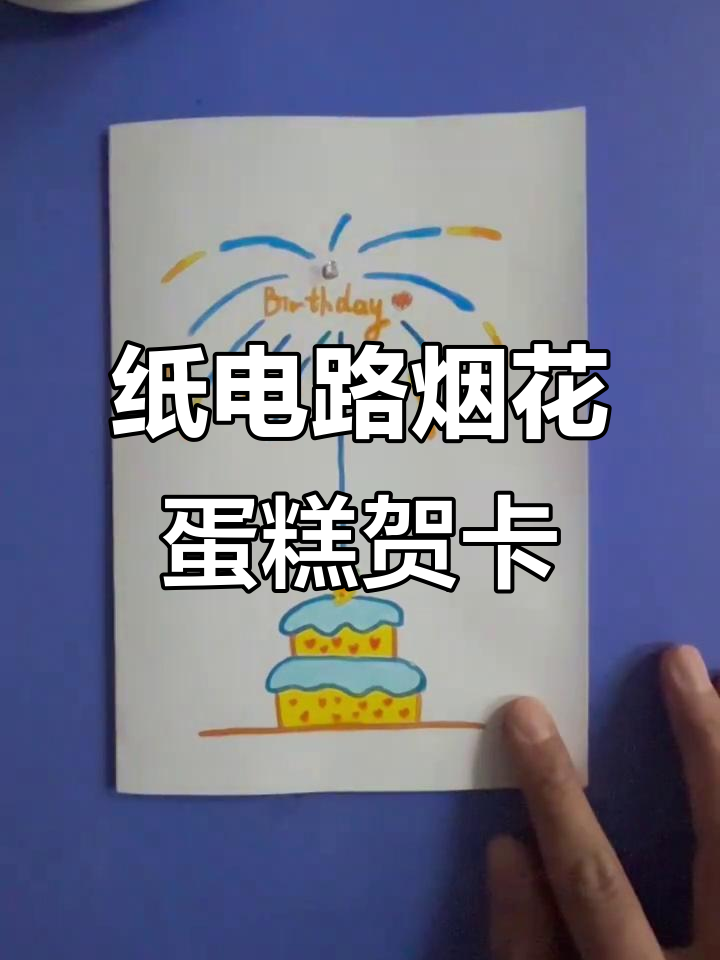 Birthday
纸电路烟花
蛋糕贺卡